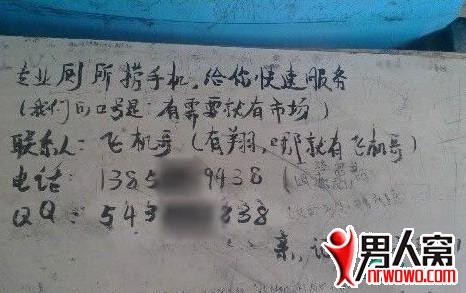 专业厕所捞手机,给你快速服务
(我们的口号是:有需要就有市场)
联系人:飞机哥(有翔,哪就有飞机哥)
电话: 1385 9438
QQ: 543 338
亲,
男人窝
nrwowo.com